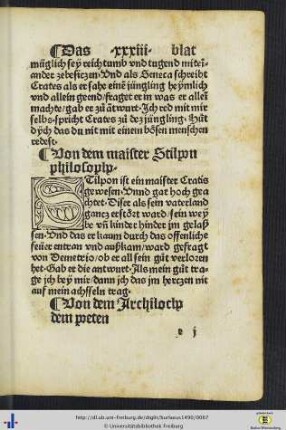 ¶Das xxxiii blat
müglich sey reichtumb vnd tugend mitein
ander zebesiczen. Vnd als Seneca schreibt
Crates als er sahe eine jüngling heymlich
vnd allein geend/fraget er in was er allein
machte/gab er zů antwurt. Ich red mit mir
selbs/spricht Crates zů dez jüngling. Hüt
dych das du nit mit einem bösen menschen
redest.
¶Von dem maister Stilpon
philosophy.
Stilpon ist ein maister Cratis
gewesen. Vnnd gar hoch gea
chtet. Diser als sein vaterland
gancz erstört ward/sein wey
be vnd kinder hinder jm gelass
sen. Vnd das er kaum durch das offenliche
feüer entran vnd außkam/ward gefragt
von Demetrio/ob er all sein gůt verlozen
het. Gab er die antwurt. Als mein gůt tra
ge jch bey mir. dann jch das jm herczen nit
auf mein achseln trag.
¶Von dem Archiloch
dem poeten
e j
http://dl.ub.uni-freiburg.de/diglit/burlaeus1490/0067
© Universitätsbibliothek Freiburg